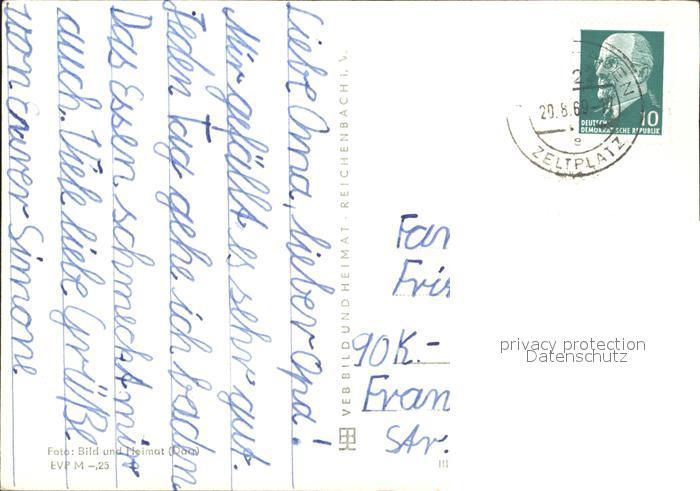 Liebe Oma, lieber Opa!
Mir gefällt es sehr gut.
Jeden Tag gehe ich baden.
Das Essen schmeckt mir
auch. Viele liebe Grüße
von Eurer Simone
VEB BILD UND HEIMAT · REICHENBACH I. V.
Foto: Bild und Heimat (Darr)
EVP M –,25
DEUTSCHE
DEMOKRATISCHE REPUBLIK
10
20.8.6
ZELTPLATZ
Fam
Fris
90 K.-
Fran
Str.
III
privacy protection
Datenschutz